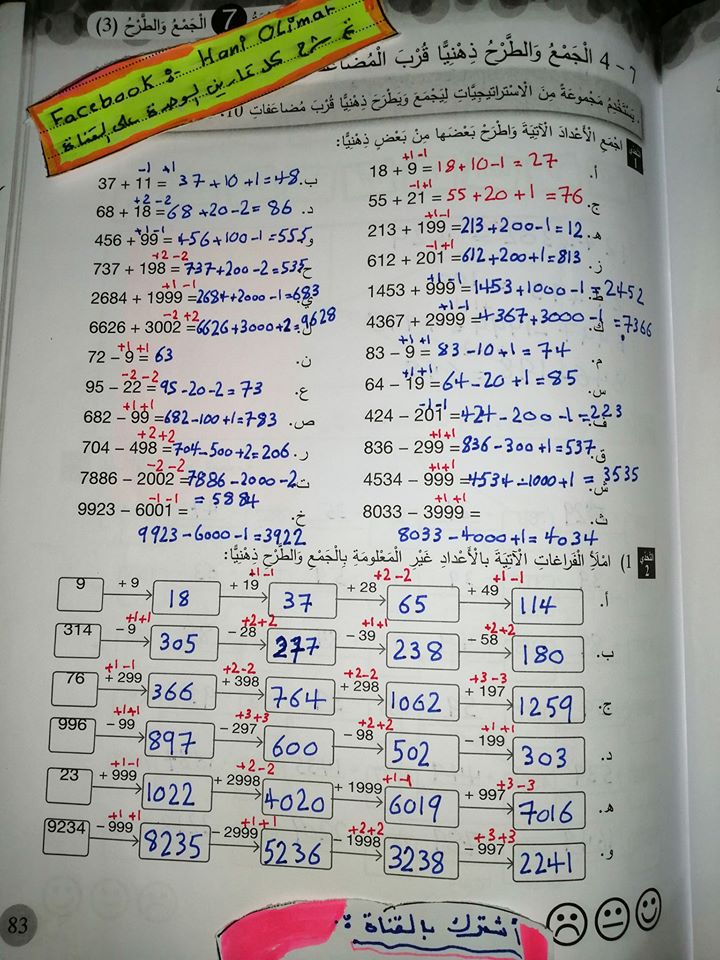 7 الْجَمْعُ وَالطَّرْحُ (3)
Facebook:- Hani Olimar
تم شرح كل تمارين الوحدة على القناة
7 – 4 الْجَمْعُ وَالطَّرْحُ ذِهْنِيًّا قُرْبَ
يَسْتَخْدِمُ مَجْموعَةً مِنَ الْاِسْتراتيجِيَّاتِ لِيَجْمَعَ وَيَطْرَحَ ذِهْنِيًّا قُرْبَ مُضاعَفاتِ 10.
التحدي 1 اجْمَعِ الْأَعْدادَ الْآتِيَةَ وَاطْرَحْ بَعْضَها مِنْ بَعْضٍ ذِهْنِيًّا:
+1 -1
أ. 18 + 9 = 18+10-1 = 27
-1 +1
ب. 37 + 11 = 37+10+1=48
-1+1
ج. 55 + 21 = 55+20+1 = 76
+2 -2
د. 68 + 18 = 68+20-2= 86
+1 -1
هـ. 213 + 199 = 213+200-1=12
+1 -1
و. 456 + 99 = 456+100-1=555
-1 +1
ز. 612 + 201 = 612+200+1=813
+2 -2
ح. 737 + 198 = 737+200-2=535
+1 -1
ط. 1453 + 999 = 1453+1000-1=2452
+1 -1
ي. 2684 + 1999 = 2684+2000-1=683
+1 -1
ك. 4367 + 2999 = 4367+3000-1 =7366
-2 +2
ل. 6626 + 3002 = 6626+3000+2=9628
+1 +1
م. 83 – 9 = 83-10+1= 74
+1 +1
ن. 72 – 9 = 63
+1+1
س. 64 – 19 = 64-20+1= 85
-2 -2
ع. 95 – 22 = 95-20-2= 73
-1 -1
ف. 424 – 201 = 424-200-1=223
+1 +1
ص. 682 – 99 = 682-100+1=783
+1+1
ق. 836 – 299 = 836-300+1=537
+2 +2
ر. 704 – 498 = 704-500+2=206
+1+1
ش. 4534 – 999 = 4534-1000+1 = 3535
-2 -2
ت. 7886 – 2002 = 7886-2000-2 = 5884
+1 +1
ث. 8033 – 3999 =
8033-4000+1=4034
-1 -1
خ. 9923 – 6001 =
9923-6000-1=3922
التحدي 2 1) امْلَأِ الْفَراغاتِ الْآتِيَةَ بِالْأَعْدادِ غَيْرِ الْمَعْلومَةِ بِالْجَمْعِ وَالطَّرْحِ ذِهْنِيًّا:
+1 -1 +2 -2 +1 -1
أ. 9 + 9 18 + 19 37 + 28 65 + 49 114
+1+1 +2+2 +1+1 +2+2
ب. 314 – 9 305 – 28 277 – 39 238 – 58 180
+1 -1 +2-2 +2-2 +3-3
ج. 76 + 299 366 + 398 764 + 298 1062 + 197 1259
+1+1 +3+3 +2+2 +1+1
د. 996 – 99 897 – 297 600 – 98 502 – 199 303
+1-1 +2-2 +1-1 +3-3
هـ. 23 + 999 1022 + 2998 4020 + 1999 6019 + 997 7016
+1+1 +1+1 +2+2 +3+3
و. 9234 – 999 8235 – 2999 5236 – 1998 3238 – 997 2241
أشترك بالقناة :
83